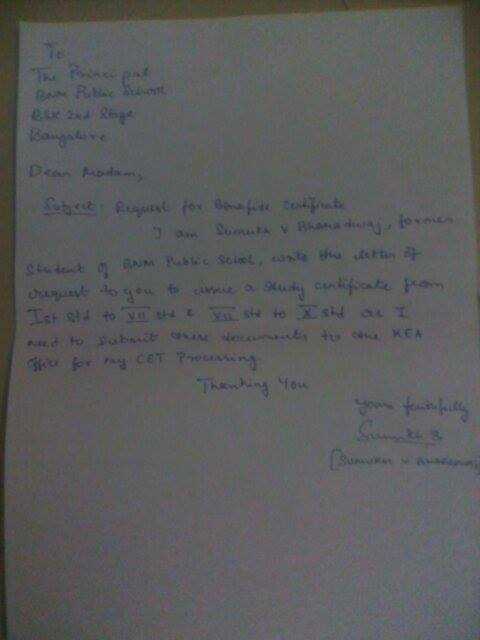 To
The Principal
BNM Public School
BSK 2nd Stage
Bangalore
Dear Madam,
Subject: Request for Bonafide Certificate
I am Sumukh V Bharadwaj, former
student of BNM Public School, write this letter of
request to you to issue a study certificate from
Ist std to VII std & VII std to X std as I
need to submit these documents to the KEA
office for my CET Processing.
Thanking You
Yours faithfully
Sumukh B
[SUMUKH V BHARADWAJ]